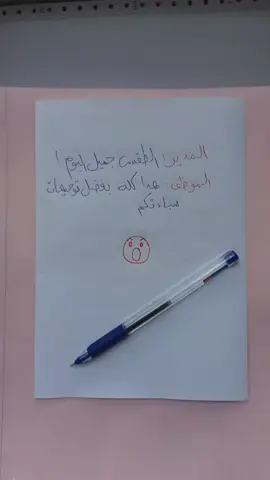 المدير: الطقس جميل اليوم!
الموظف: هذا كله بفضل توجيهات
سيادتكم